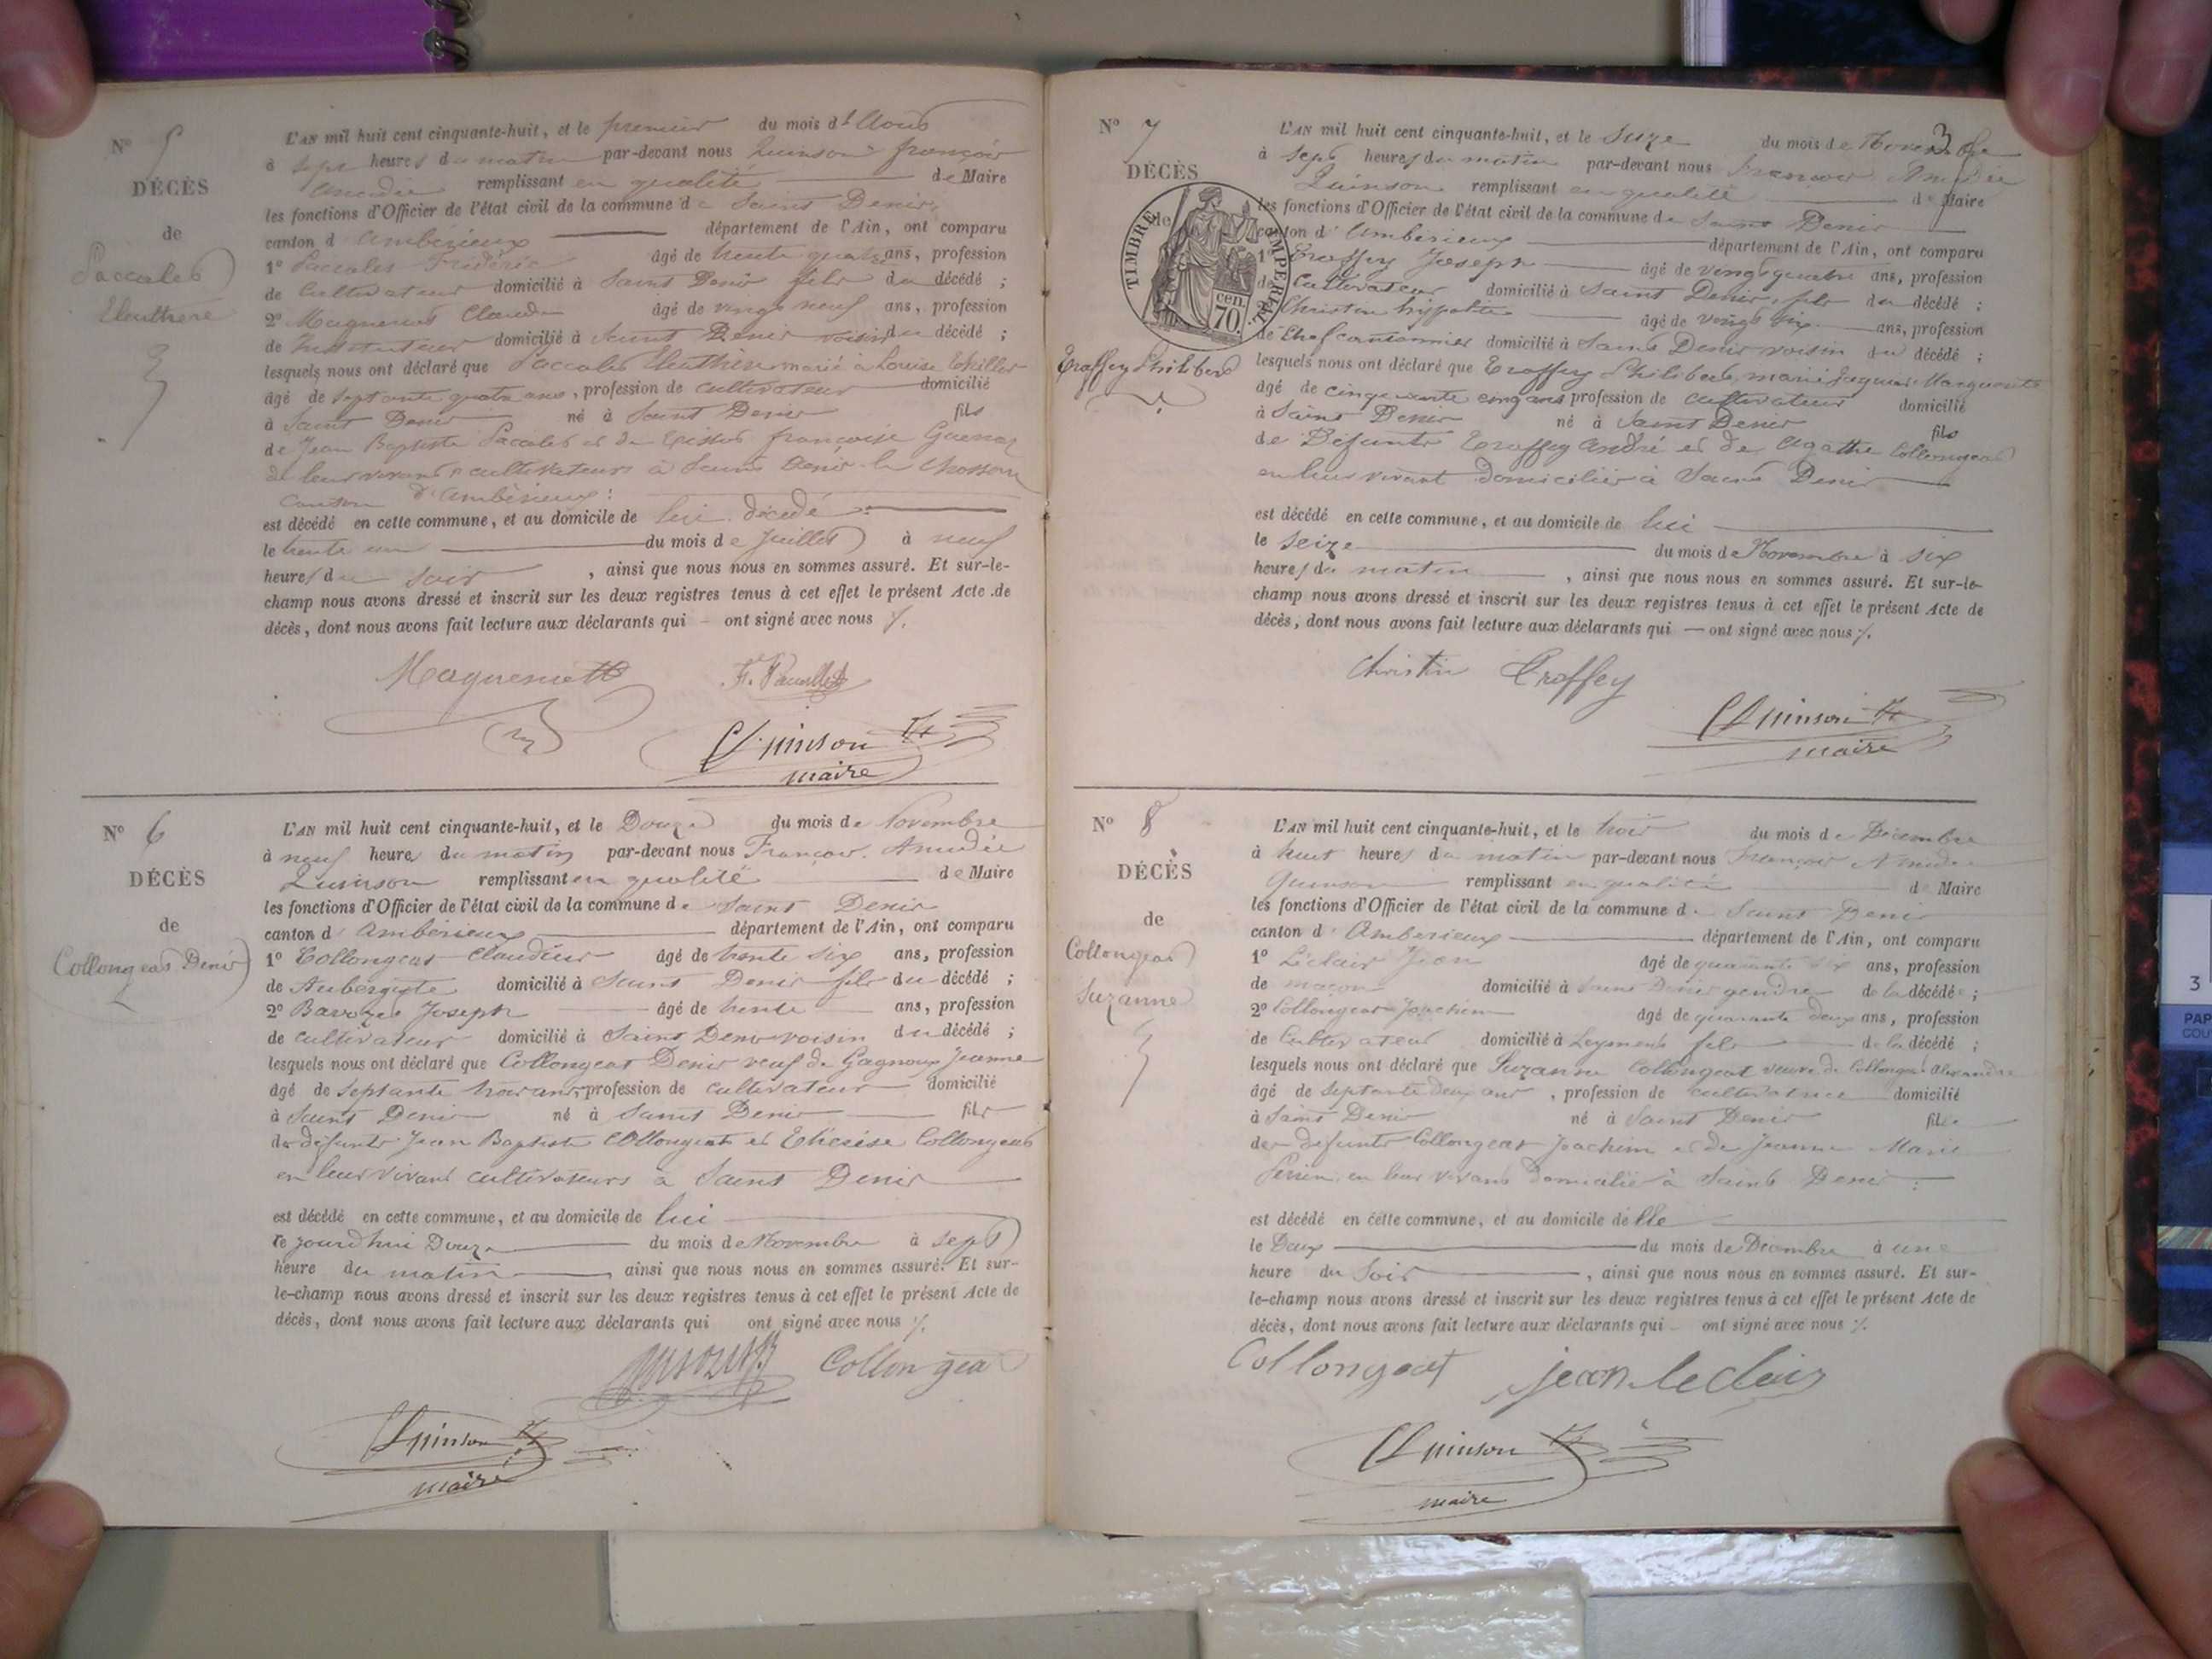 N° 5
DÉCÈS
de
Paccalet
Eleuthère
L'AN mil huit cent cinquante-huit, et le premier du mois d'Aout
à sept heures du matin par-devant nous Quinson françois
Amédée remplissant en qualité de Maire
les fonctions d'Officier de l'état civil de la commune de Saint Denis
canton d'Ambérieux département de l'Ain, ont comparu
1° Paccalet Frédéric âgé de trente quatre ans, profession
de Cultivateur domicilié à Saint Denis fils du décédé ;
2° Magnenot Claude âgé de vingt neuf ans, profession
de Instituteur domicilié à Saint Denis voisin du décédé ;
lesquels nous ont déclaré que Paccalet Eleuthère marié à Louise
âgé de septante quatre ans, profession de cultivateur domicilié
à Saint Denis né à Saint Denis fils
de Jean Baptiste Paccalet et de françoise
de leur vivant cultivateurs à Saint Denis le Chosson
canton d'Ambérieux :
est décédé en cette commune, et au domicile de lui décédé
le trente un du mois de Juillet à neuf
heures du soir , ainsi que nous nous en sommes assuré. Et sur-le-
champ nous avons dressé et inscrit sur les deux registres tenus à cet effet le présent Acte de
décès, dont nous avons fait lecture aux déclarants qui ont signé avec nous
F. Paccallet
Quinson
maire
N° 6
DÉCÈS
de
Collongeat Denis
L'AN mil huit cent cinquante-huit, et le Douze du mois de Novembre
à neuf heures du matin par-devant nous François Amédée
Quinson remplissant en qualité de Maire
les fonctions d'Officier de l'état civil de la commune de Saint Denis
canton d'Amberieux département de l'Ain, ont comparu
1° Collongeat Claudius âgé de trente six ans, profession
de Aubergiste domicilié à Saint Denis fils du décédé ;
2° Joseph âgé de trente ans, profession
de cultivateur domicilié à Saint Denis voisin du décédé ;
lesquels nous ont déclaré que Collongeat Denis veuf de Gagnoux Jeanne
âgé de septante trois ans, profession de cultivateur domicilié
à Saint Denis né à Saint Denis fils
de défunts Jean Baptiste Collongeat et Thérèse Collongeat
en leur vivant cultivateurs à Saint Denis
est décédé en cette commune, et au domicile de lui
le jourd'hui Douze du mois de Novembre à sept
heure du matin , ainsi que nous nous en sommes assuré. Et sur-
le-champ nous avons dressé et inscrit sur les deux registres tenus à cet effet le présent Acte de
décès, dont nous avons fait lecture aux déclarants qui ont signé avec nous
Collongeat
Quinson
maire
3
N° 7
DÉCÈS
de
TIMBRE IMPÉRIAL
70 cen.
Traffey Philibert
L'AN mil huit cent cinquante-huit, et le Seize du mois de Novembre
à sept heures du matin par-devant nous François Amédée
Quinson remplissant en qualité de Maire
les fonctions d'Officier de l'état civil de la commune de Saint Denis
canton d'Amberieux département de l'Ain, ont comparu
1° Traffey Joseph âgé de vingt quatre ans, profession
de Cultivateur domicilié à Saint Denis, fils du décédé ;
2° Christin hyppolite âgé de vingt six ans, profession
de Chef cantonnier domicilié à Saint Denis voisin du décédé ;
lesquels nous ont déclaré que Traffey Philibert, marié Marguerite
âgé de cinquante cinq ans profession de cultivateur domicilié
à Saint Denis né à Saint Denis fils
de Défunts Traffey André et de Agathe Collongeat
en leur vivant Domiciliés à Saint Denis
est décédé en cette commune, et au domicile de lui
le Seize du mois de Novembre à six
heures du matin , ainsi que nous nous en sommes assuré. Et sur-le-
champ nous avons dressé et inscrit sur les deux registres tenus à cet effet le présent Acte de
décès, dont nous avons fait lecture aux déclarants qui ont signé avec nous
Christin Traffey
Quinson
maire
N° 8
DÉCÈS
de
Collongeat
Suzanne
L'AN mil huit cent cinquante-huit, et le trois du mois de Décembre
à huit heures du matin par-devant nous François Amédée
Quinson remplissant en qualité de Maire
les fonctions d'Officier de l'état civil de la commune de Saint Denis
canton d'Amberieux département de l'Ain, ont comparu
1° Léclair Jean âgé de quarante six ans, profession
de maçon domicilié à Saint Denis gendre de la décédée ;
2° Collongeat Joachim âgé de quarante deux ans, profession
de Cultivateur domicilié à Leyment fils de la décédé ;
lesquels nous ont déclaré que Suzanne Collongeat veuve de Collongeat Alexandre
âgé de septante deux ans , profession de cultivatrice domicilié
à Saint Denis né à Saint Denis fille
de défunts Collongeat Joachim et de Jeanne Marie
en leur vivant Domicilié à Saint Denis :
est décédé en cette commune, et au domicile delle
le Deux du mois de Décembre à une
heure du soir , ainsi que nous nous en sommes assuré. Et sur-
le-champ nous avons dressé et inscrit sur les deux registres tenus à cet effet le présent Acte de
décès, dont nous avons fait lecture aux déclarants qui ont signé avec nous
Collongeat jean leclair
Quinson
maire
3
PAP